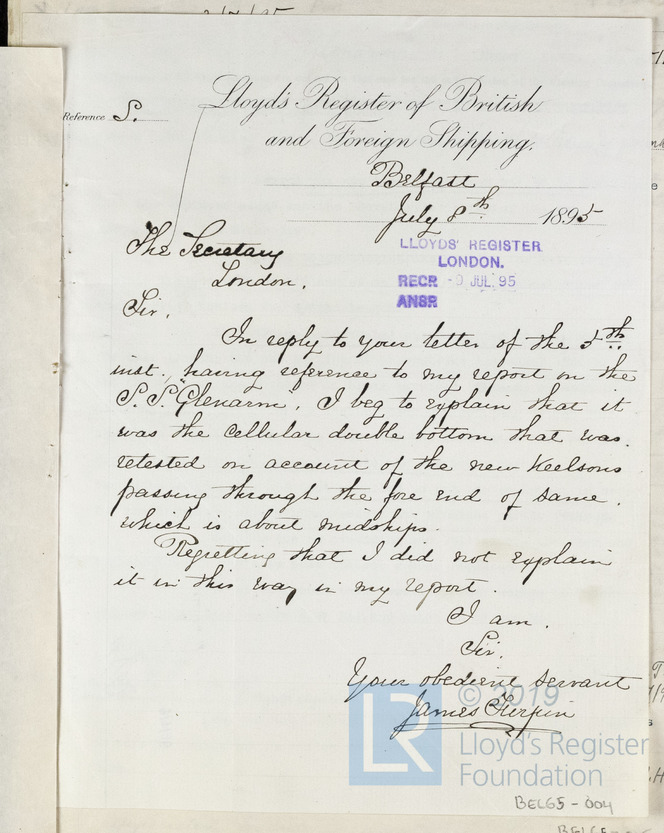 Reference S.
Lloyd's Register of British
and Foreign Shipping.
Belfast
July 8th 1895
LLOYDS' REGISTER
LONDON.
RECR -9 JUL 95
ANSR
The Secretary
London.
Sir,
In reply to your letter of the 5th
inst., having reference to my report on the
S.S. "Glenarm", I beg to explain that it
was the cellular double bottom that was
retested on account of the new Keelsons
passing through the fore end of same.
which is about midships.
Regretting that I did not explain
it in this way in my report.
I am.
Sir.
Your obedient servant
James Turpin
© 2019
LR
Lloyd's Register
Foundation
BEL65-004